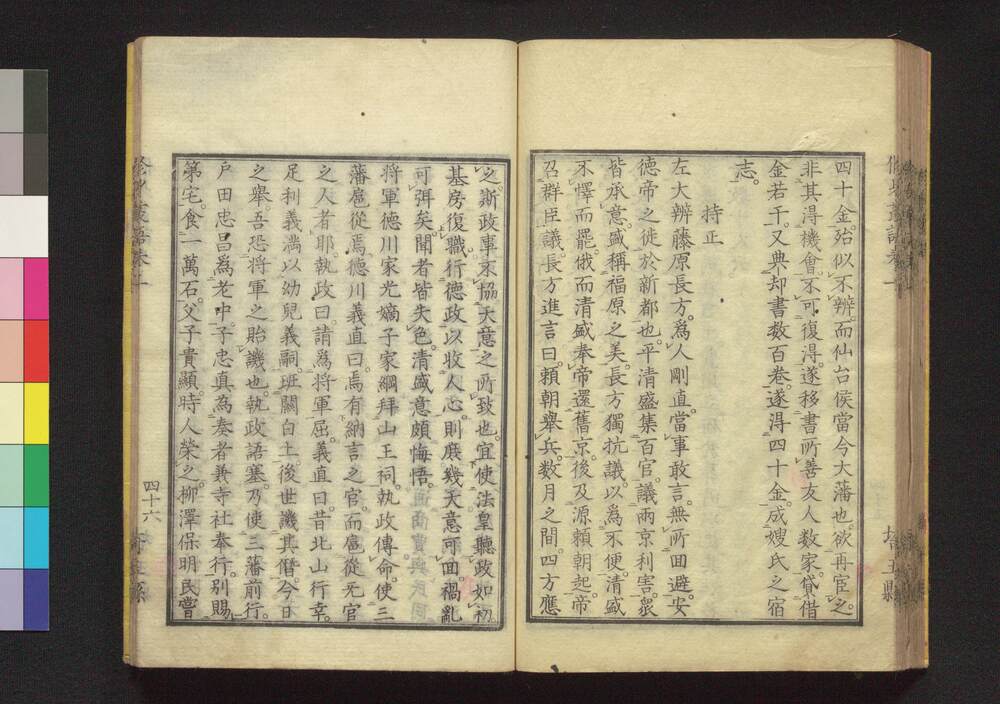 四十金。殆似不辨。而仙台侯當今大藩也。欲再宦之。
非其得機會。不可復得。遂移書所善友人数家。貸借
金若干。又典却書数百卷。遂得四十金。成嫂氏之宿
志。
持正
左大辨藤原長方。為人剛直。當事敢言。無所回避。安
德帝之徙於新都也。平清盛集百官。議兩京利害。衆
皆承意。盛稱福原之美。長方獨抗議。以為不便。清盛
不懌而罷。俄而清盛奉帝還舊京。後及源頼朝起。帝
召群臣議。長方進言曰。頼朝舉兵。数月之間。四方應
之。斯政事不協天意之所致也。宜使法皇聽政如初。
基房復職。行德政以收人心。則庶幾天意可回。禍亂
可弭矣。聞者皆失色。清盛意頗悔悟。
將軍德川家光嫡子家綱拜山王祠。執政傳命。使三
藩扈從焉。德川義直曰。焉有納言之官。而扈從无官
之人者耶。執政曰。請為將軍屈。義直曰。昔北山行幸。
足利義満以幼兒義嗣。班關白上。後世譏其僭。今日
之舉。吾恐將軍之貽譏也。執政語塞。乃使三藩前行。
戸田忠昌為老中。子忠真為奏者兼寺社奉行。別賜
第宅。食一萬石。父子貴顯。時人榮之。柳澤保明民嘗
四十六